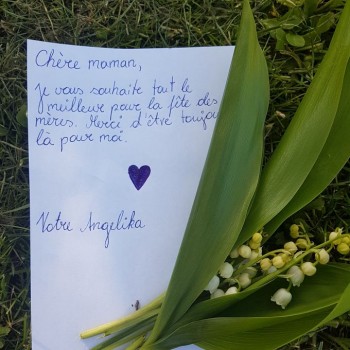 Chère maman,
je vous souhaite tout le
meilleur pour la fête des
mères. Merci d'être toujou
là pour moi.
Votre Angelika